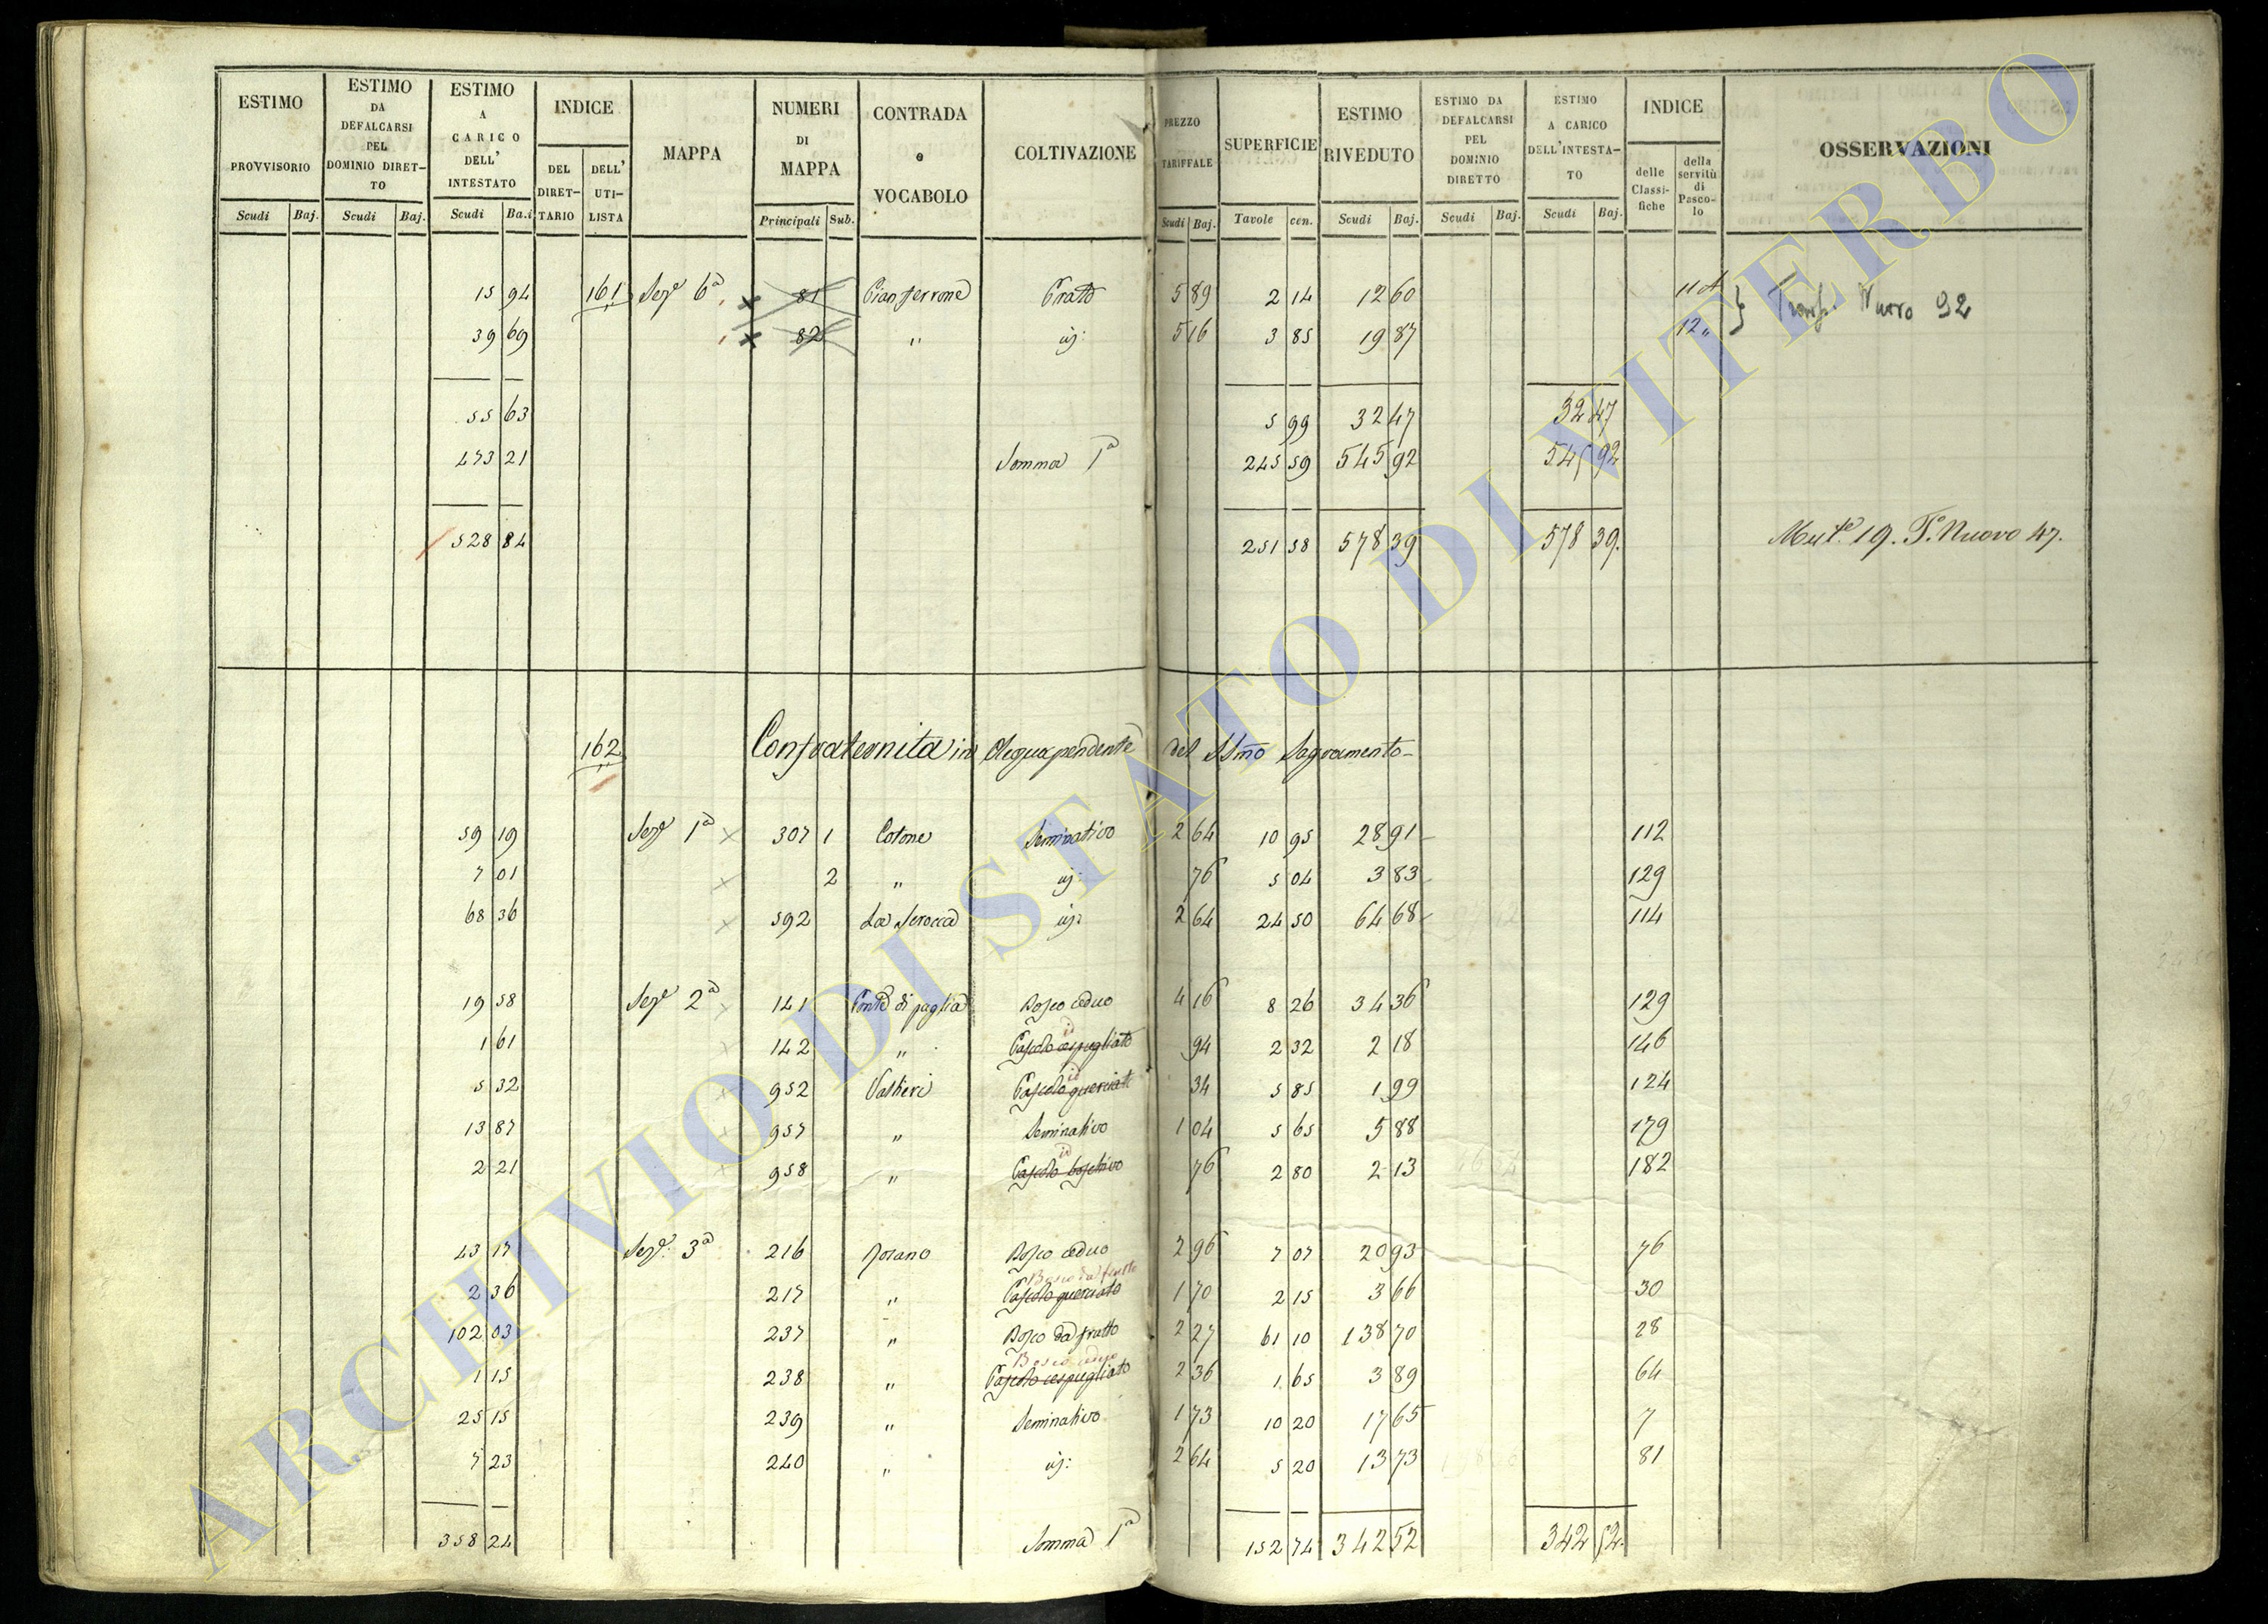 ESTIMO PROVVISORIO Scudi Baj.
ESTIMO DA DEFALCARSI PEL DOMINIO DIRET-TO Scudi Baj.
ESTIMO A CARICO DELL' INTESTATO Scudi Ba.i
INDICE DEL DIRET-TARIO DELL' UTI-LISTA
MAPPA
NUMERI DI MAPPA Principali Sub.
CONTRADA e VOCABOLO
COLTIVAZIONE
PREZZO TARIFFALE Scudi Baj.
SUPERFICIE Tavole cen.
ESTIMO RIVEDUTO Scudi Baj.
ESTIMO DA DEFALCARSI PEL DOMINIO DIRETTO Scudi Baj.
ESTIMO A CARICO DELL'INTESTA-TO Scudi Baj.
INDICE delle Classi-fiche della servitù di Pasco-lo
OSSERVAZIONI
15 94 161 Sezᵉ 6ª 81 Pian ferrone Prato 5 89 2 14 12 60 11 } Trasp. Nuovo 92
39 69 82 " id: 5 16 3 85 19 87 12 "
55 63 5 99 32 47 32 47
473 21 Somma 1ª 245 59 545 92 545 92
528 84 251 58 578 39 578 39. Mutᵉ. 19. T.º Nuovo 47.
162 Confraternita in Acquapendente del SSmo Sagramento
59 19 Sezᵉ 1ª 307 1 Cotone Seminativo 2 64 10 95 28 91 112
7 01 2 " id: 76 5 04 3 83 129
68 36 592 La Scrocca id: 2 64 24 50 64 68 114
19 58 Sezᵉ 2ª 141 Ponte di paglia Bosco ceduo 4 16 8 26 34 36 129
id
1 61 142 " Pascolo cespugliato 94 2 32 2 18 146
id
5 32 952 Valtieri Pascolo querciato 34 5 85 1 99 124
13 87 957 " Seminativo 1 04 5 65 5 88 179
id
2 21 958 " Pascolo boschivo 76 2 80 2 13 182
43 17 Sezᵉ: 3ª 216 Jorano Bosco ceduo 2 96 7 07 20 93 76
Bosco da frutto
2 36 217 " Pascolo querciato 1 70 2 15 3 66 30
102 03 237 " Bosco da frutto 2 27 61 10 138 70 28
Bosco ceduo
1 15 238 " Pascolo cespugliato 2 36 1 65 3 89 64
25 15 239 " Seminativo 1 73 10 20 17 65 7
7 23 240 " id: 2 64 5 20 13 73 81
358 24 Somma 1ª 152 74 342 52 342 52.
ARCHIVIO DI STATO DI VITERBO